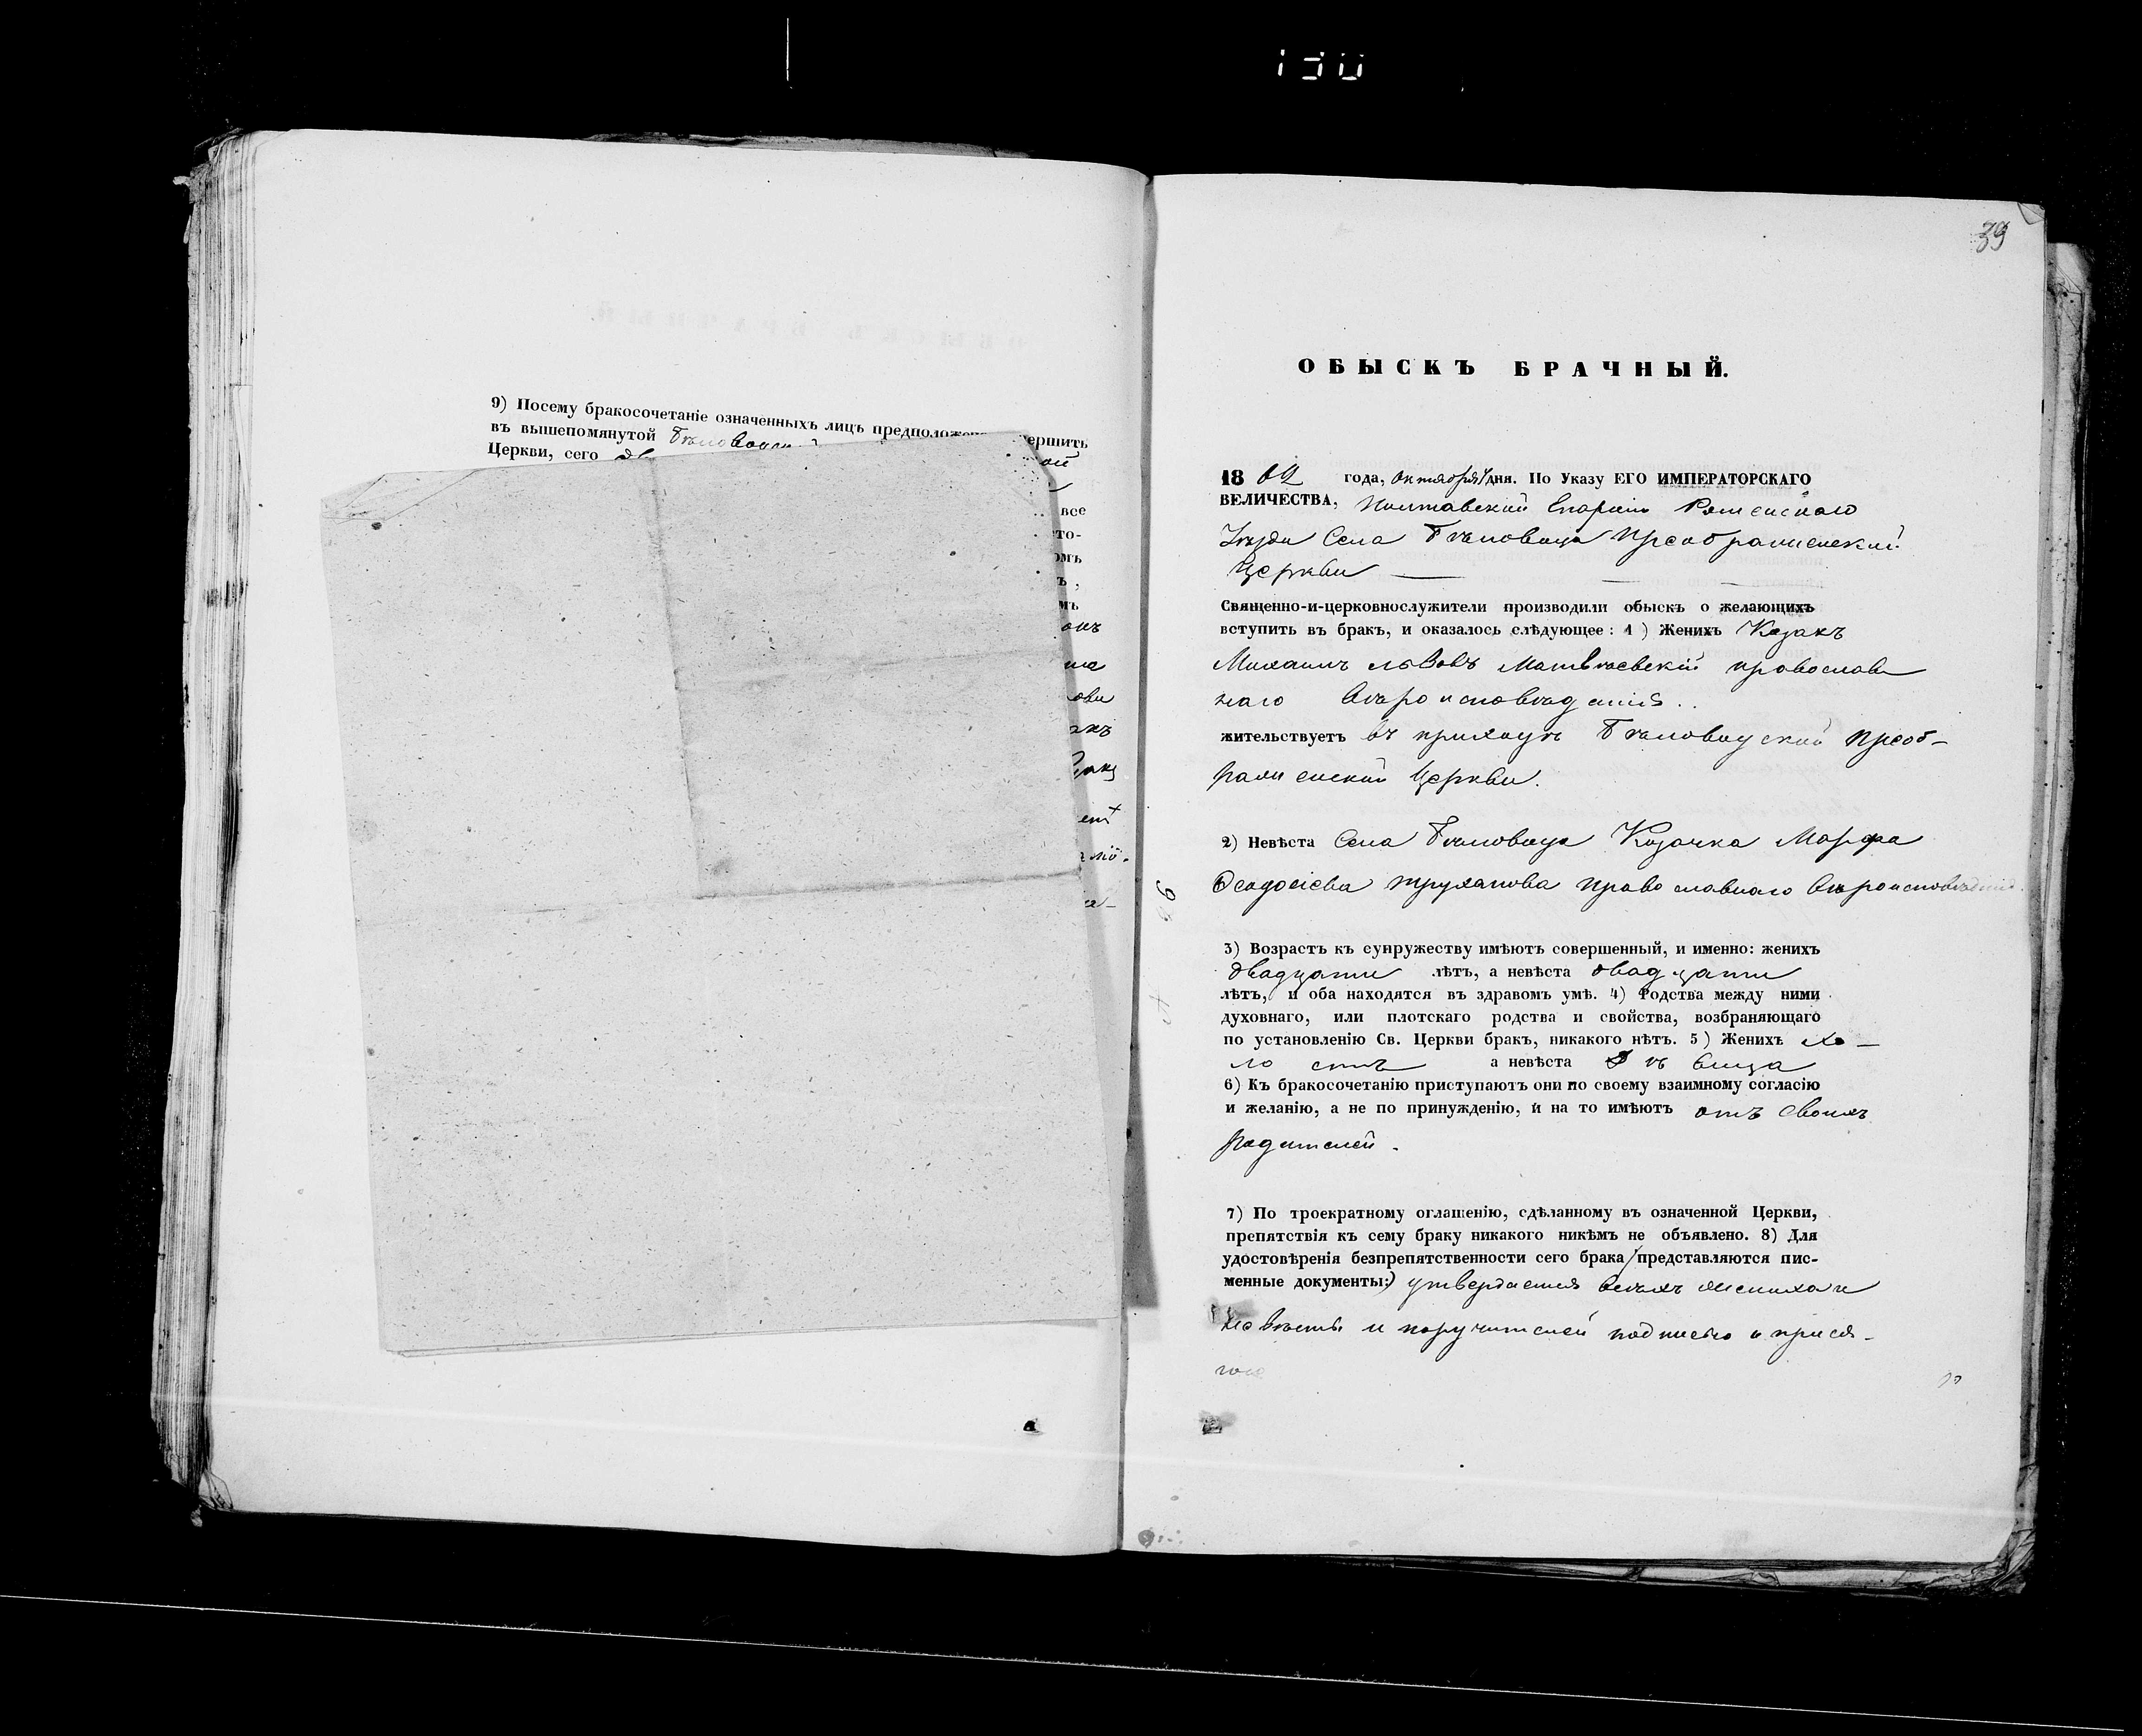 130
39
9) Посему бракосочетаніе означенныхъ лицъ предположено вершить
въ вышепомянутой Бѣловодской
Церкви, сего ой
все
то-
омъ
ъ,
мъ
ови
акъ
ОБЫСКЪ БРАЧНЫЙ.
1862 года, октября дня. По Указу ЕГО ИМПЕРАТОРСКАГО
ВЕЛИЧЕСТВА, Полтавской Епархіи Роменскаго
Уѣзда Села Бѣловода Преображенской
Церкви —
Священно-и-церковнослужители производили обыскъ о желающихъ
вступить въ бракъ, и оказалось слѣдующее: 1) Женихъ Казакъ
Михаилъ Львовъ Матвѣевскій православ
наго вѣроисповѣданія..
жительствуетъ въ приходѣ Бѣловодской Преоб-
раженской Церкви.
2) Невѣста Села Бѣловода Козачка Марфа
Ѳеодосіева Труханова православнаго вѣроисповѣданія.
3) Возрастъ къ супружеству имѣютъ совершенный, и именно: женихъ
двадцати лѣтъ, а невѣста двадцати
лѣтъ, и оба находятся въ здравомъ умѣ. 4) Родства между ними
духовнаго, или плотскаго родства и свойства, возбраняющаго
по установленію Св. Церкви бракъ, никакого нѣтъ. 5) Женихъ хо-
лостъ а невѣста дѣвица
6) Къ бракосочетанію приступаютъ они по своему взаимному согласію
и желанію, а не по принужденію, и на то имѣютъ отъ своихъ
родителей.
7) По троекратному оглашенію, сдѣланному въ означенной Церкви,
препятствія къ сему браку никакого никѣмъ не объявлено. 8) Для
удостовѣренія безпрепятственности сего брака/представляются пис-
менные документы:) утвердается всѣхъ жениха и
невѣсты и поручителей подписью и прися-
гою